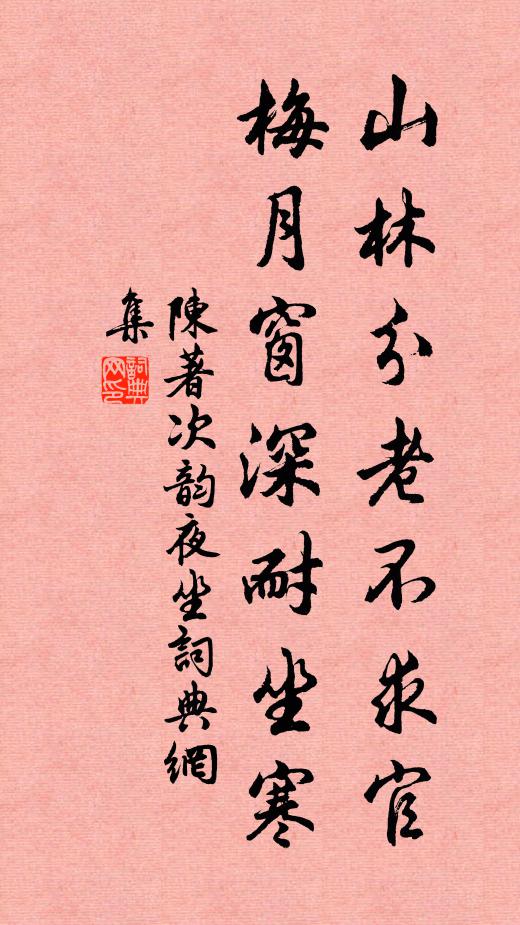 山林分老不求官
梅月窗深耐坐寒
陳著次韵夜坐詞典網
集
詞典
网印